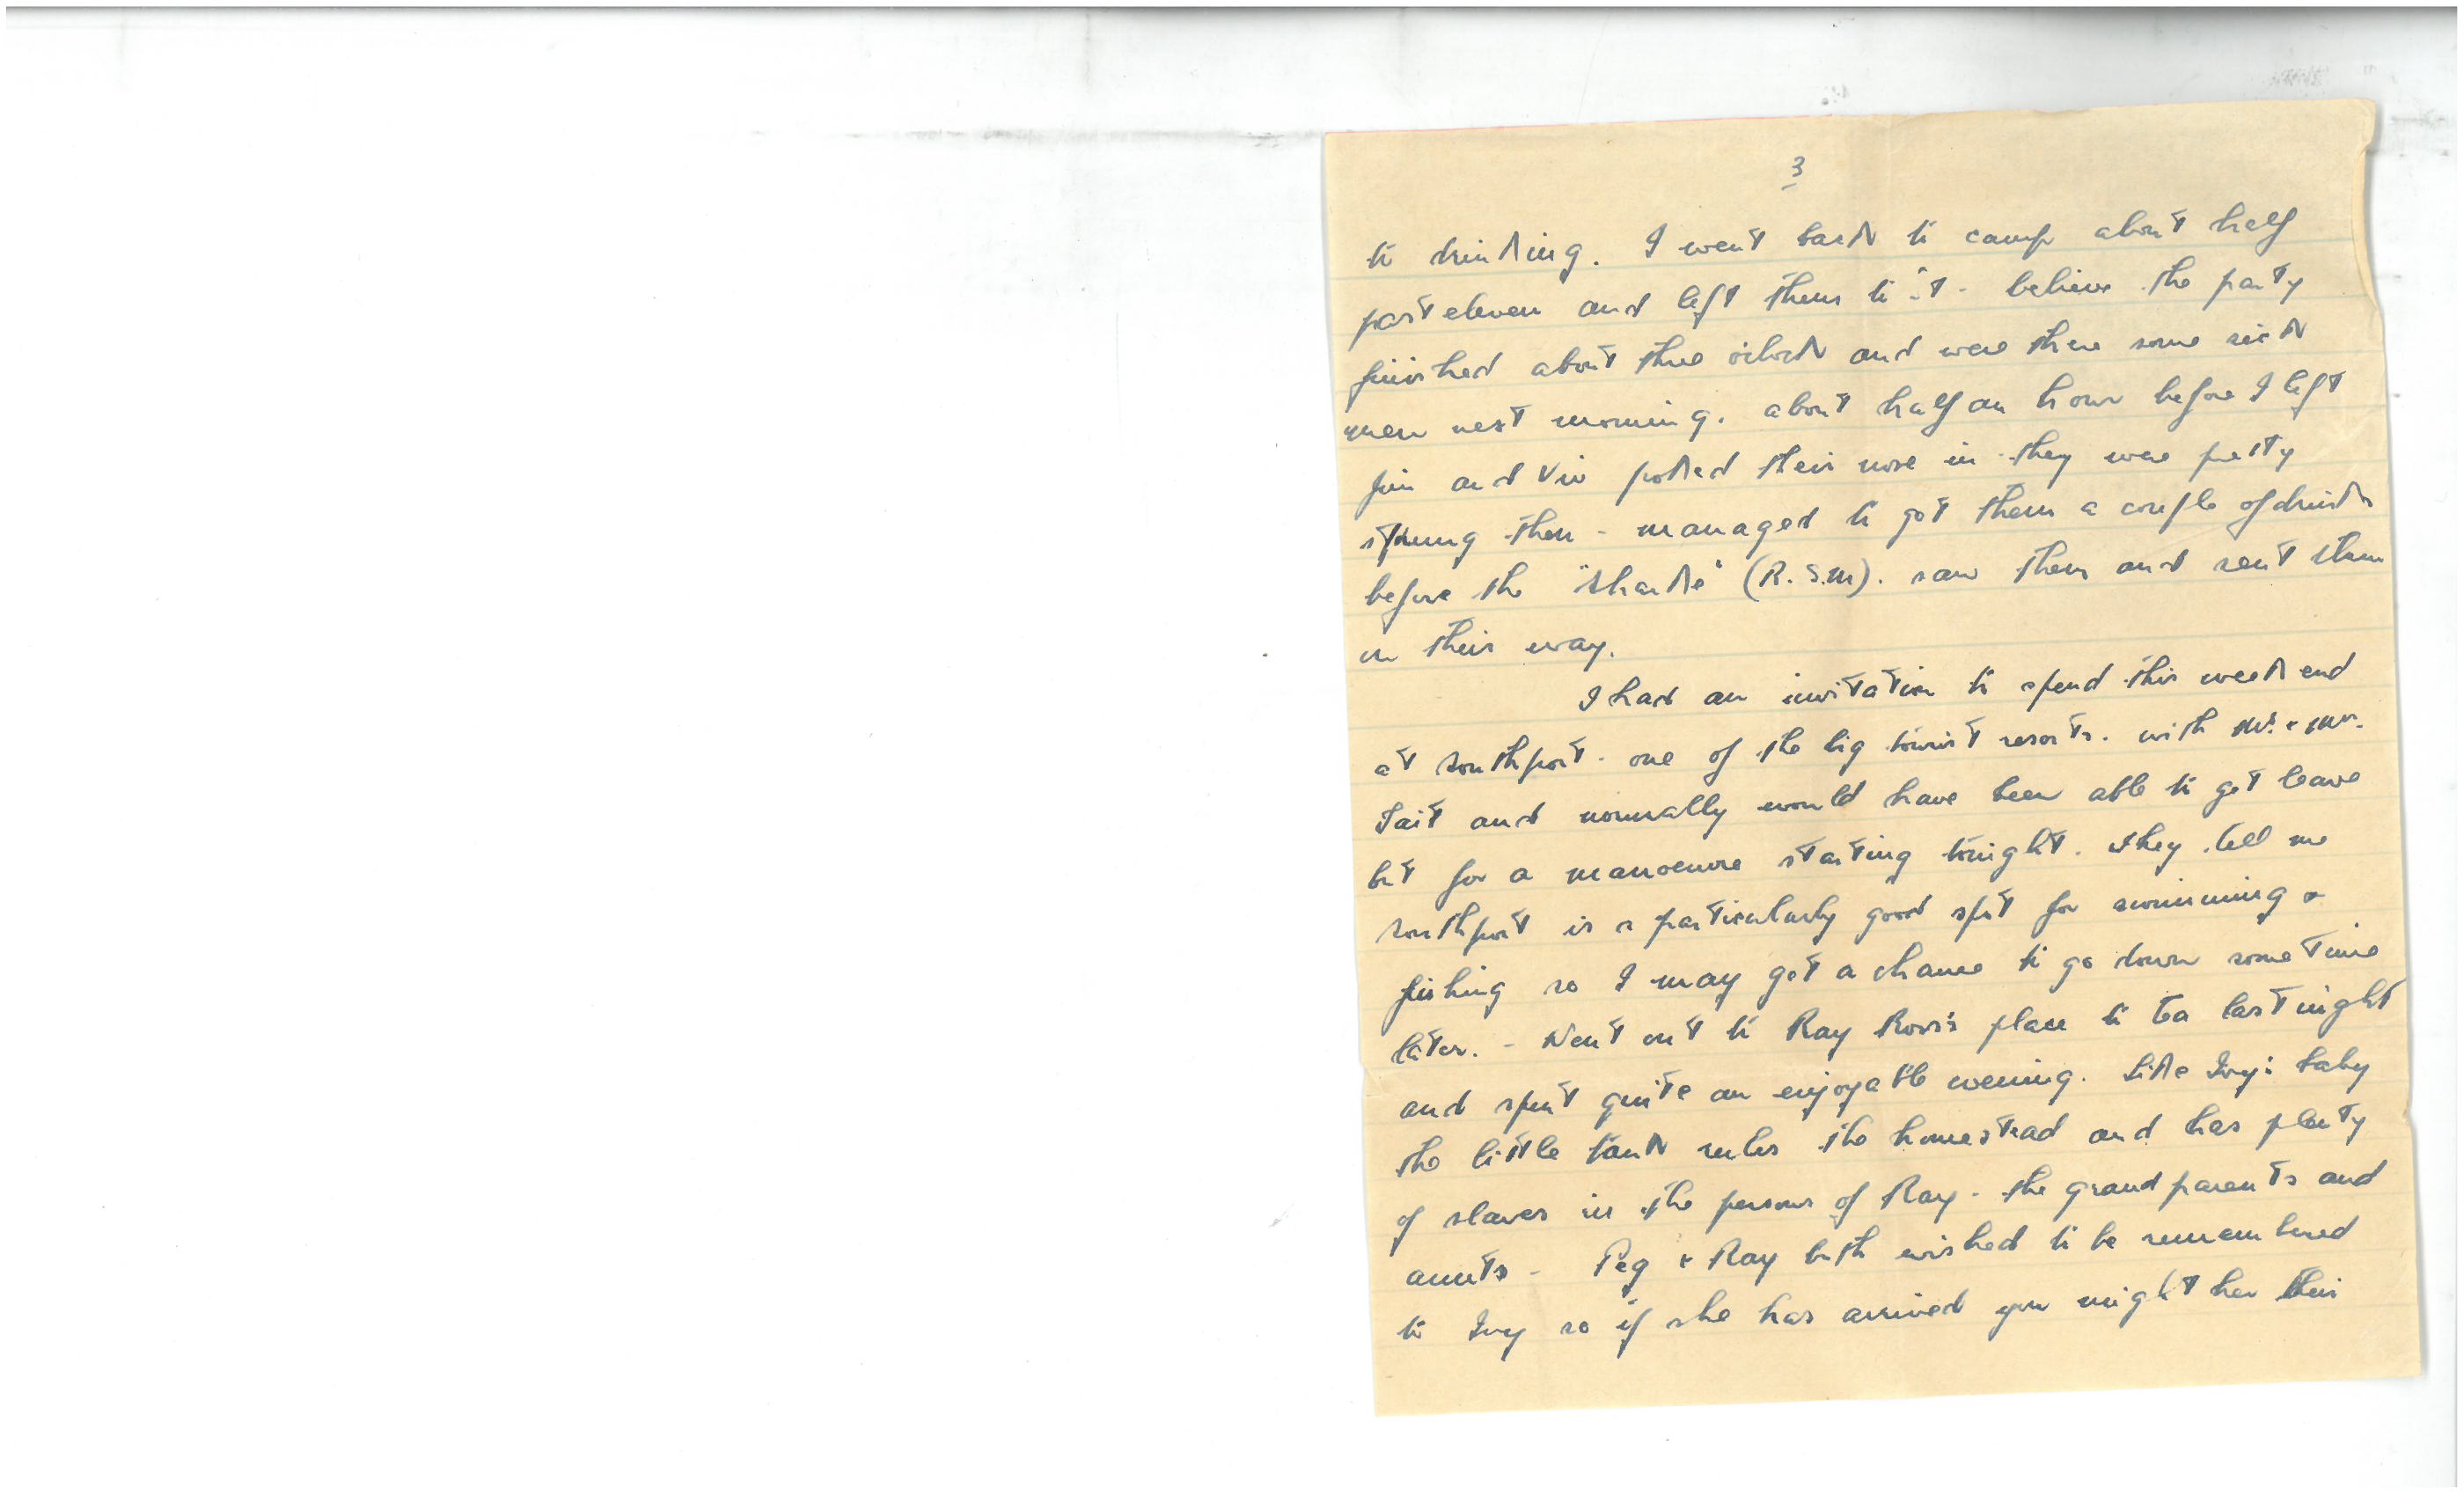 3
to drinking. I went back to camp about half
past eleven and left them to it - believe the party
finished about three o'clock and were there some sick
men next morning. about half an hour before I left
Jim and Viv poked their nose in - they were pretty
then - managed to get them a couple of drinks
before the "Sharke" (R.S.M). saw them and sent them
on their way.
I had an invitation to spend this week end
at Southport - one of the big tourist resorts. with Mr. & Mrs.
Tait and normally would have been able to get leave
but for a manoeuvre starting tonight. They tell me
Southport is a particularly good spot for swimming &
fishing so I may get a chance to go down some time
later. - Went out to Ray Ross's place to tea last night
and spent quite an enjoyable evening. Like Ivy's baby
the little tank rules the homestead and has plenty
of slaves in the persons of Ray - the grand parents and
aunts - Peg & Ray both wished to be remembered
to Ivy so if she has arrived you might her their